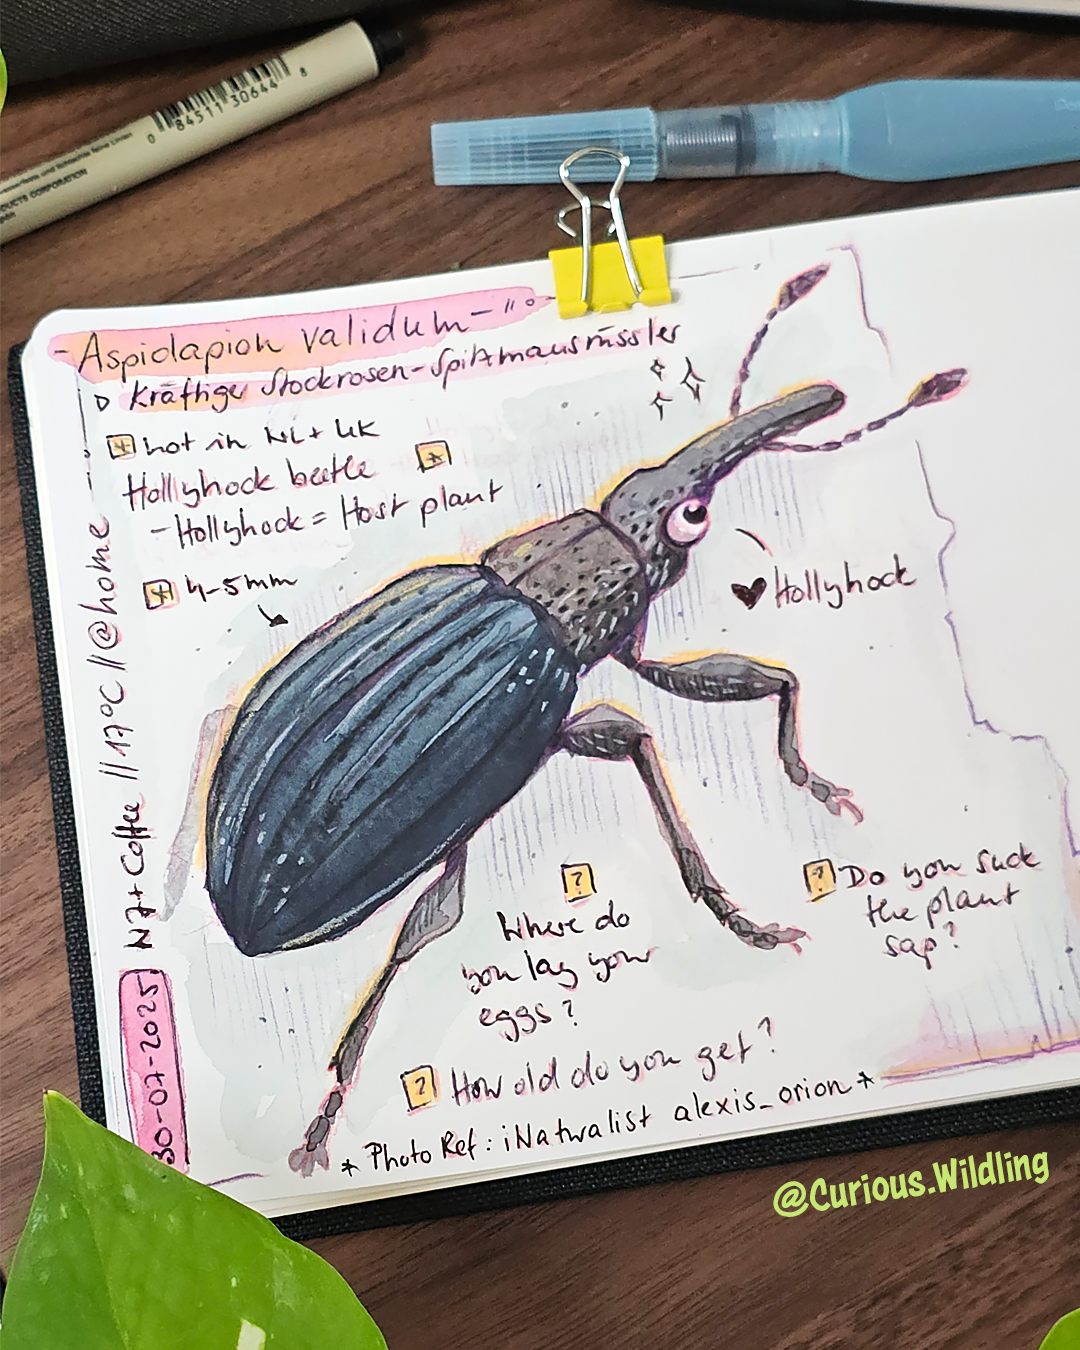 0 84511 30644 8
DUCTS CORPORATION
- Aspidapion validum - "o
▷ Kräftige Stockrosen-Spitzmausrüssler
not in NL + UK
Hollyhock beetle
- Hollyhock = Host plant
4-5mm
♥ Hollyhock
30-07-2025 + Coffee // 17°C // @home
? Where do
you lay your
eggs?
? Do you suck
the plant
sap?
? How old do you get?
* Photo Ref: iNaturalist alexis_orion *
@Curious.Wildling